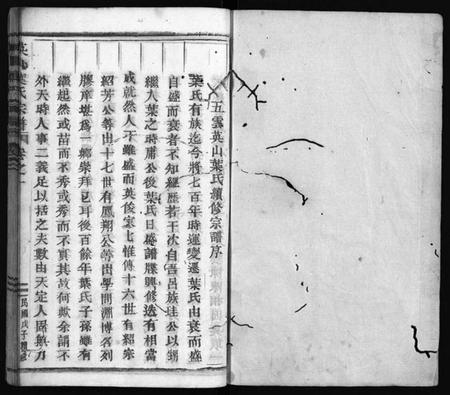 五雲英山葉氏續修宗譜序
葉氏有族迄今將七百年時運變遷葉氏由衰而盛
自盛而衰者不知經歷若干次自吾呂族珪公以甥
繼入葉之時庸公後葉氏日盛譜牒興修迭有相當
成就然人不雖盛而英俊寔七惟傳十六世有紹宗
紹芳公等出十七世有鳳朔公等出學問淵博名列
膠庠堪為一鄉崇拜已耳後百餘年葉氏子孫雖有
繼起然或苗而不秀或秀而不實其故何歟余謂不
外天時人事二義足以括之夫數由天定人固無力
英山葉氏宗譜 卷之一
民國戊子續修